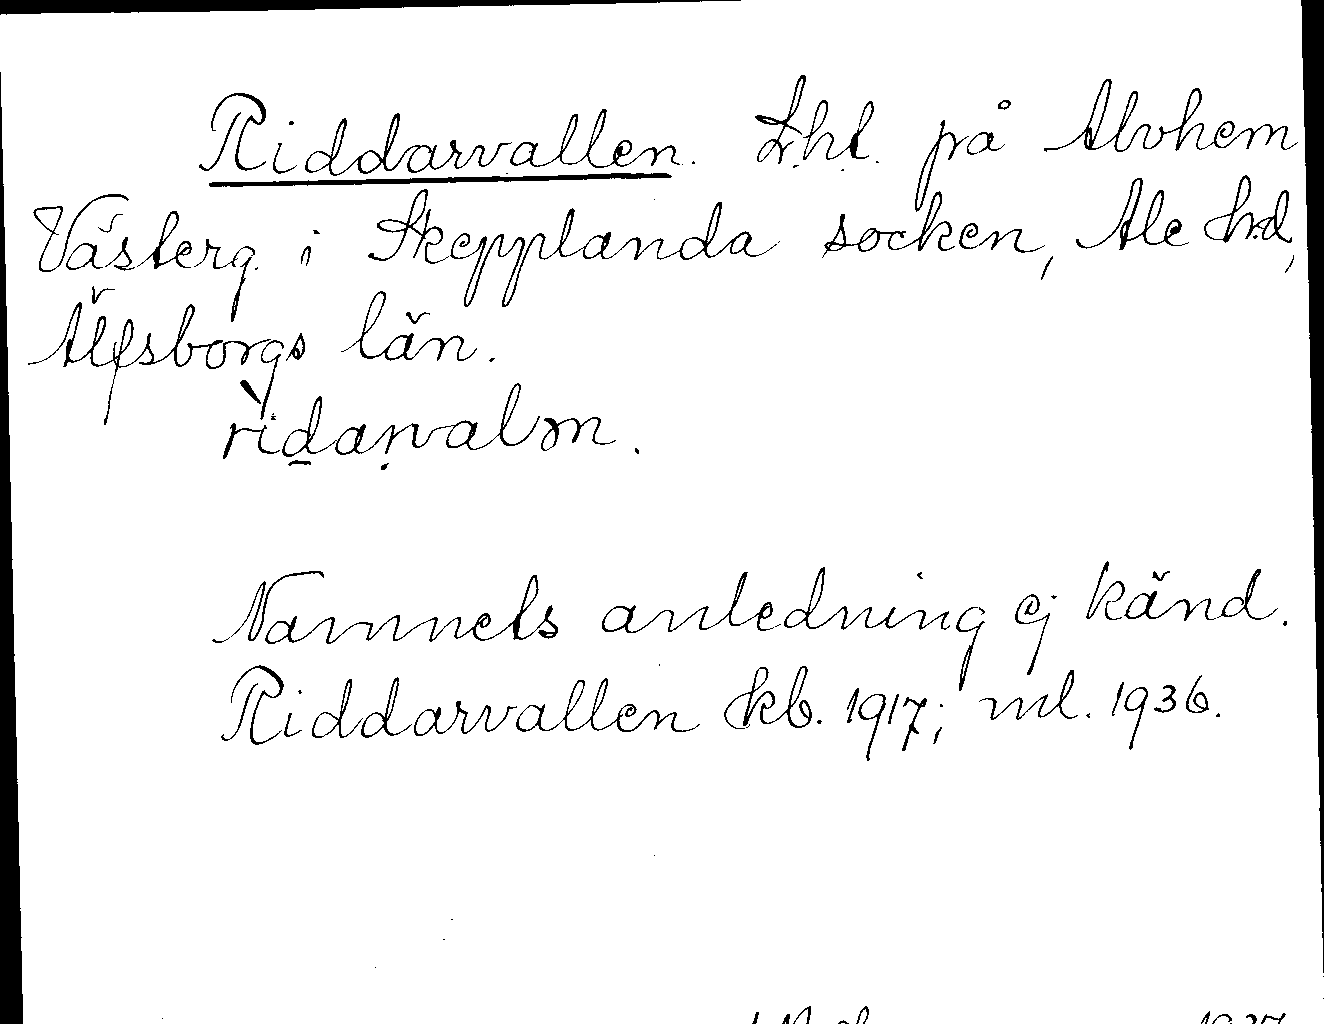 Riddarvallen. Lht. på Alvhem
Västerg. i Skepplanda socken, Ale hd,
Älfsborgs län.
rìdaṛvalən.
Namnets anledning ej känd.
Riddarvallen kb. 1917; ml. 1936.